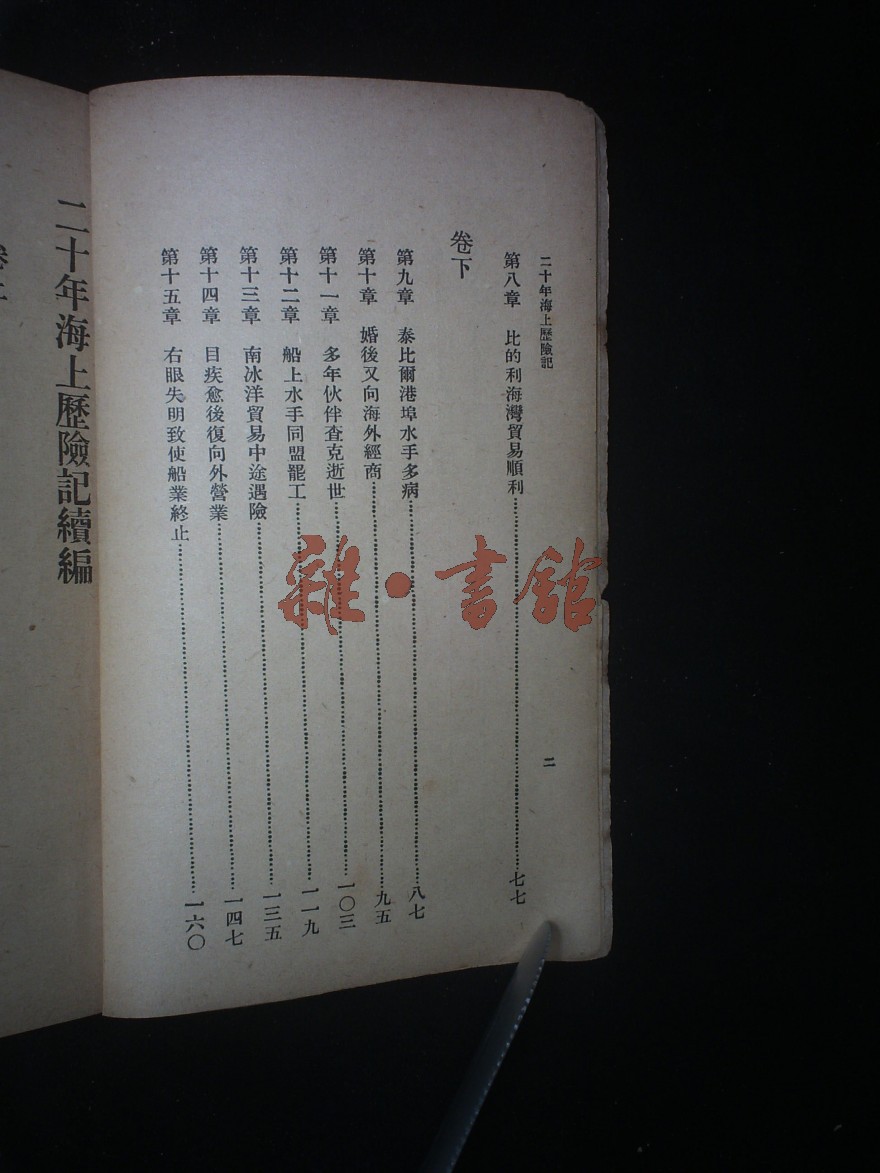 二十年海上歷險記
第八章 比的利海灣貿易順利……七七
卷下
第九章 泰比爾港埠水手多病……八七
第十章 婚後又向海外經商……九五
第十一章 多年伙伴查克逝世……一〇三
第十二章 船上水手同盟罷工……一一九
第十三章 南冰洋貿易中途遇險……一三五
第十四章 目疾愈後復向外營業……一四七
第十五章 右眼失明致使船業終止……一六〇
二
二十年海上歷險記續編
雜·書館